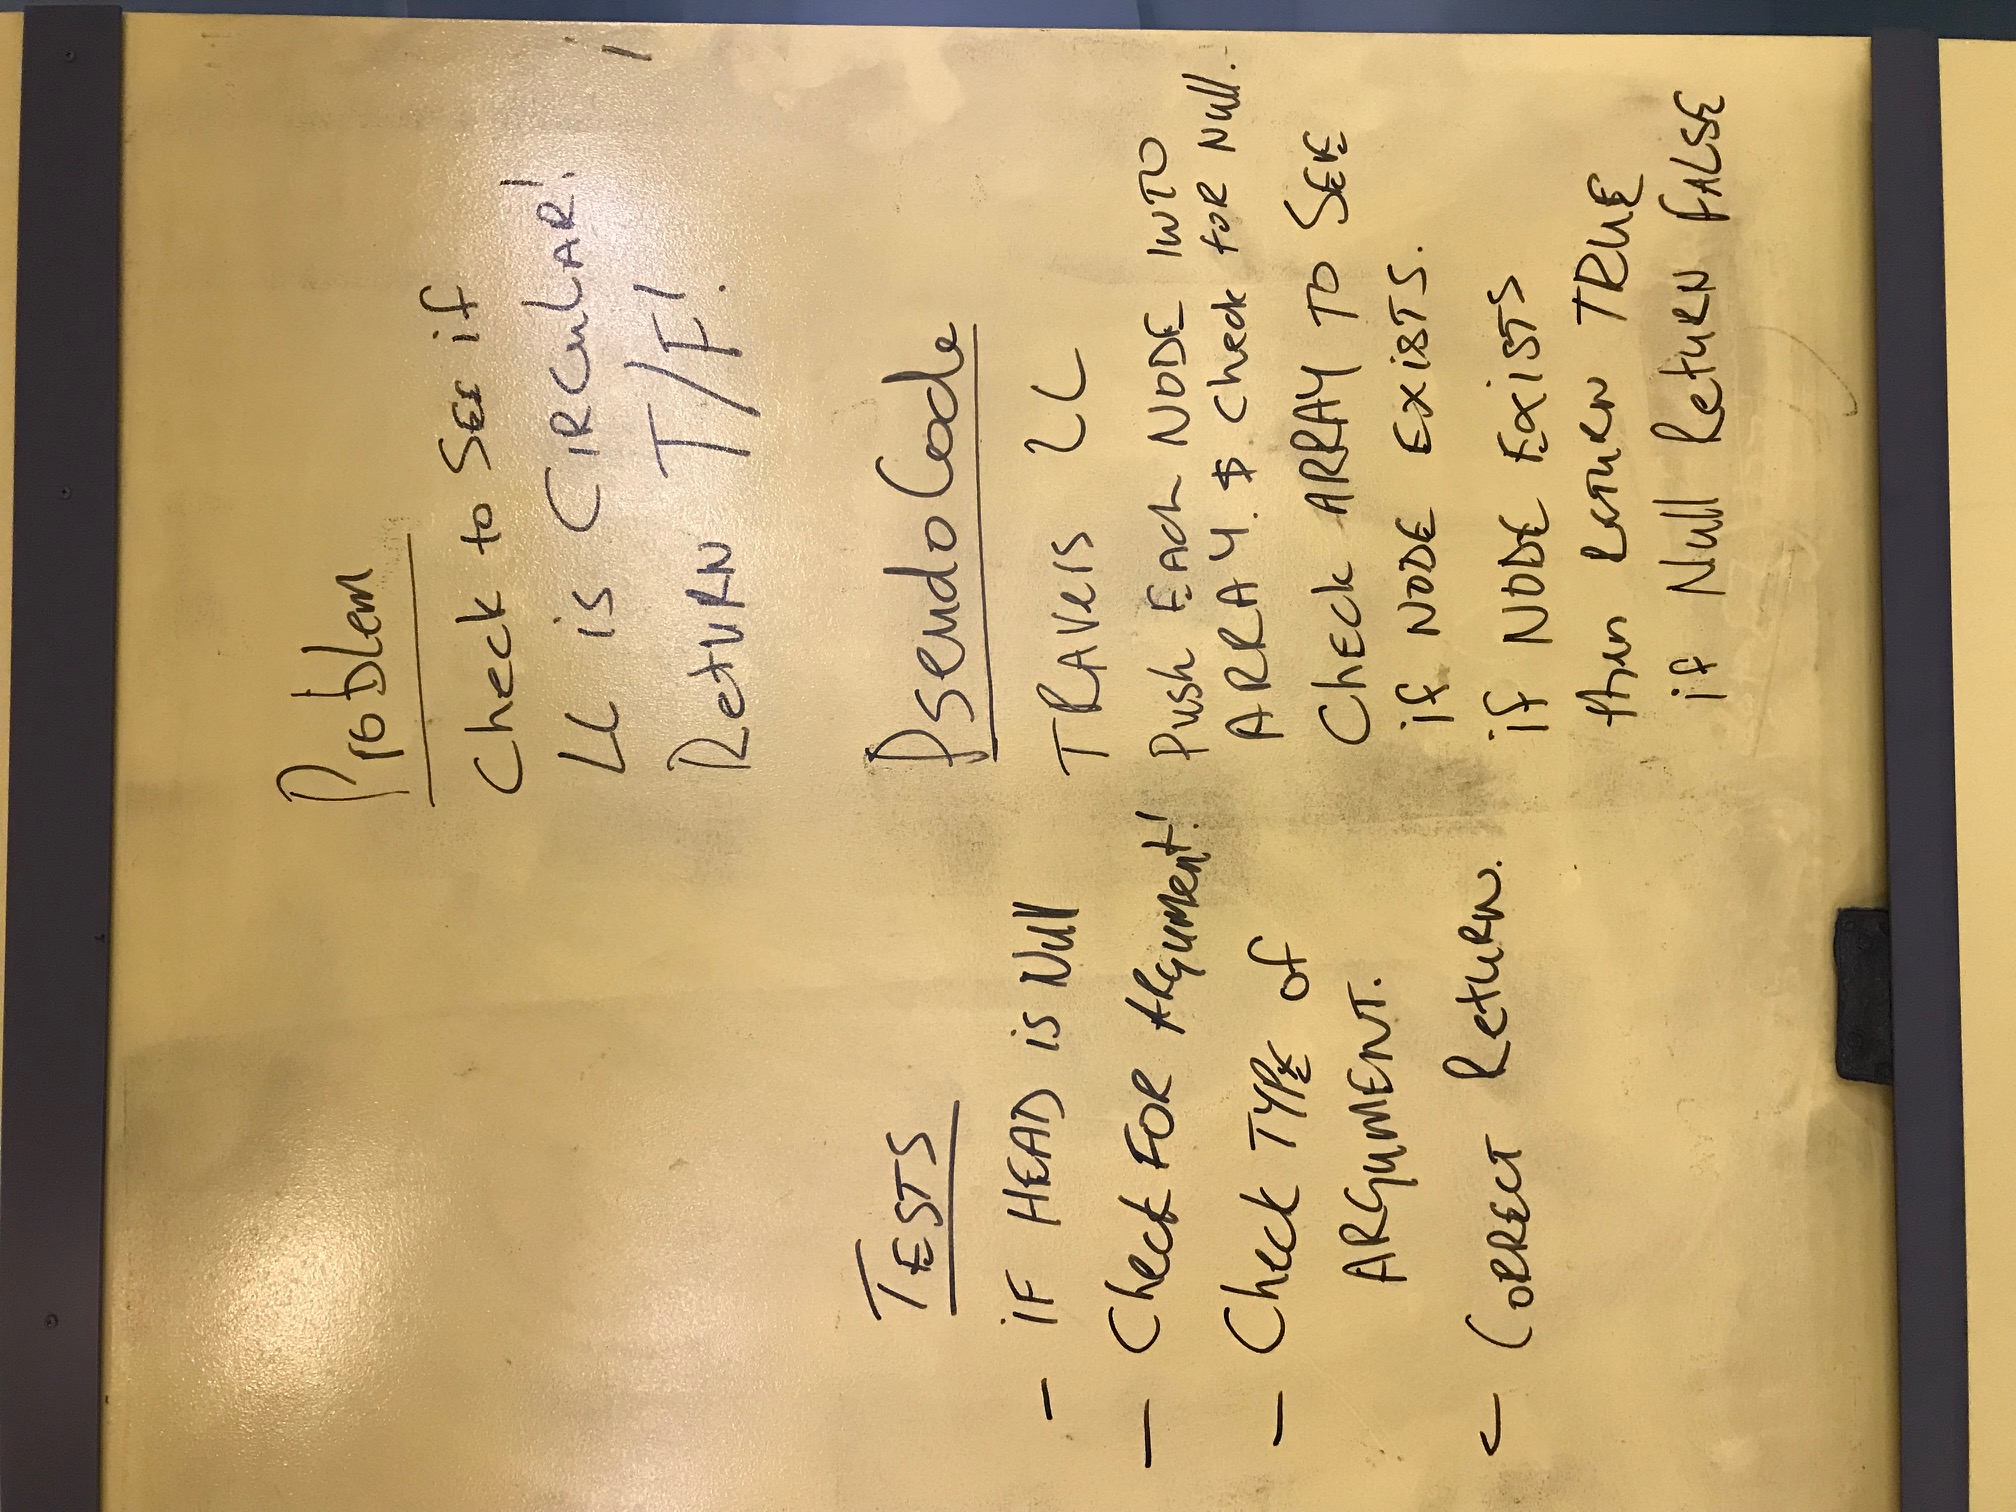 Problem
Check to SEE if
LL is CIRCULAR!
Return T/F!
TESTS
- iF HEAD is Null
- Check FOR ARgument!
- Check TYPE of
ARGUMENT.
- CORRECT Return.
PseudoCode
TRAVERS LL
Push EACH NODE INTO
ARRAY. & Check FOR Null.
Check ARRAY TO SEE
if NODE EXISTS.
if NODE EXISTS
then RETURN TRUE
if Null Return FALSE